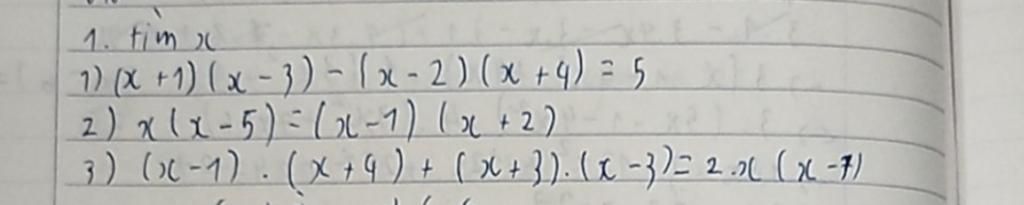 1. tìm x
1) (x + 1) (x - 3) - (x - 2) (x + 4) = 5
2) x (x - 5) = (x - 1) (x + 2)
3) (x - 1) . (x + 4) + (x + 3) . (x - 3) = 2 . x (x - 7)